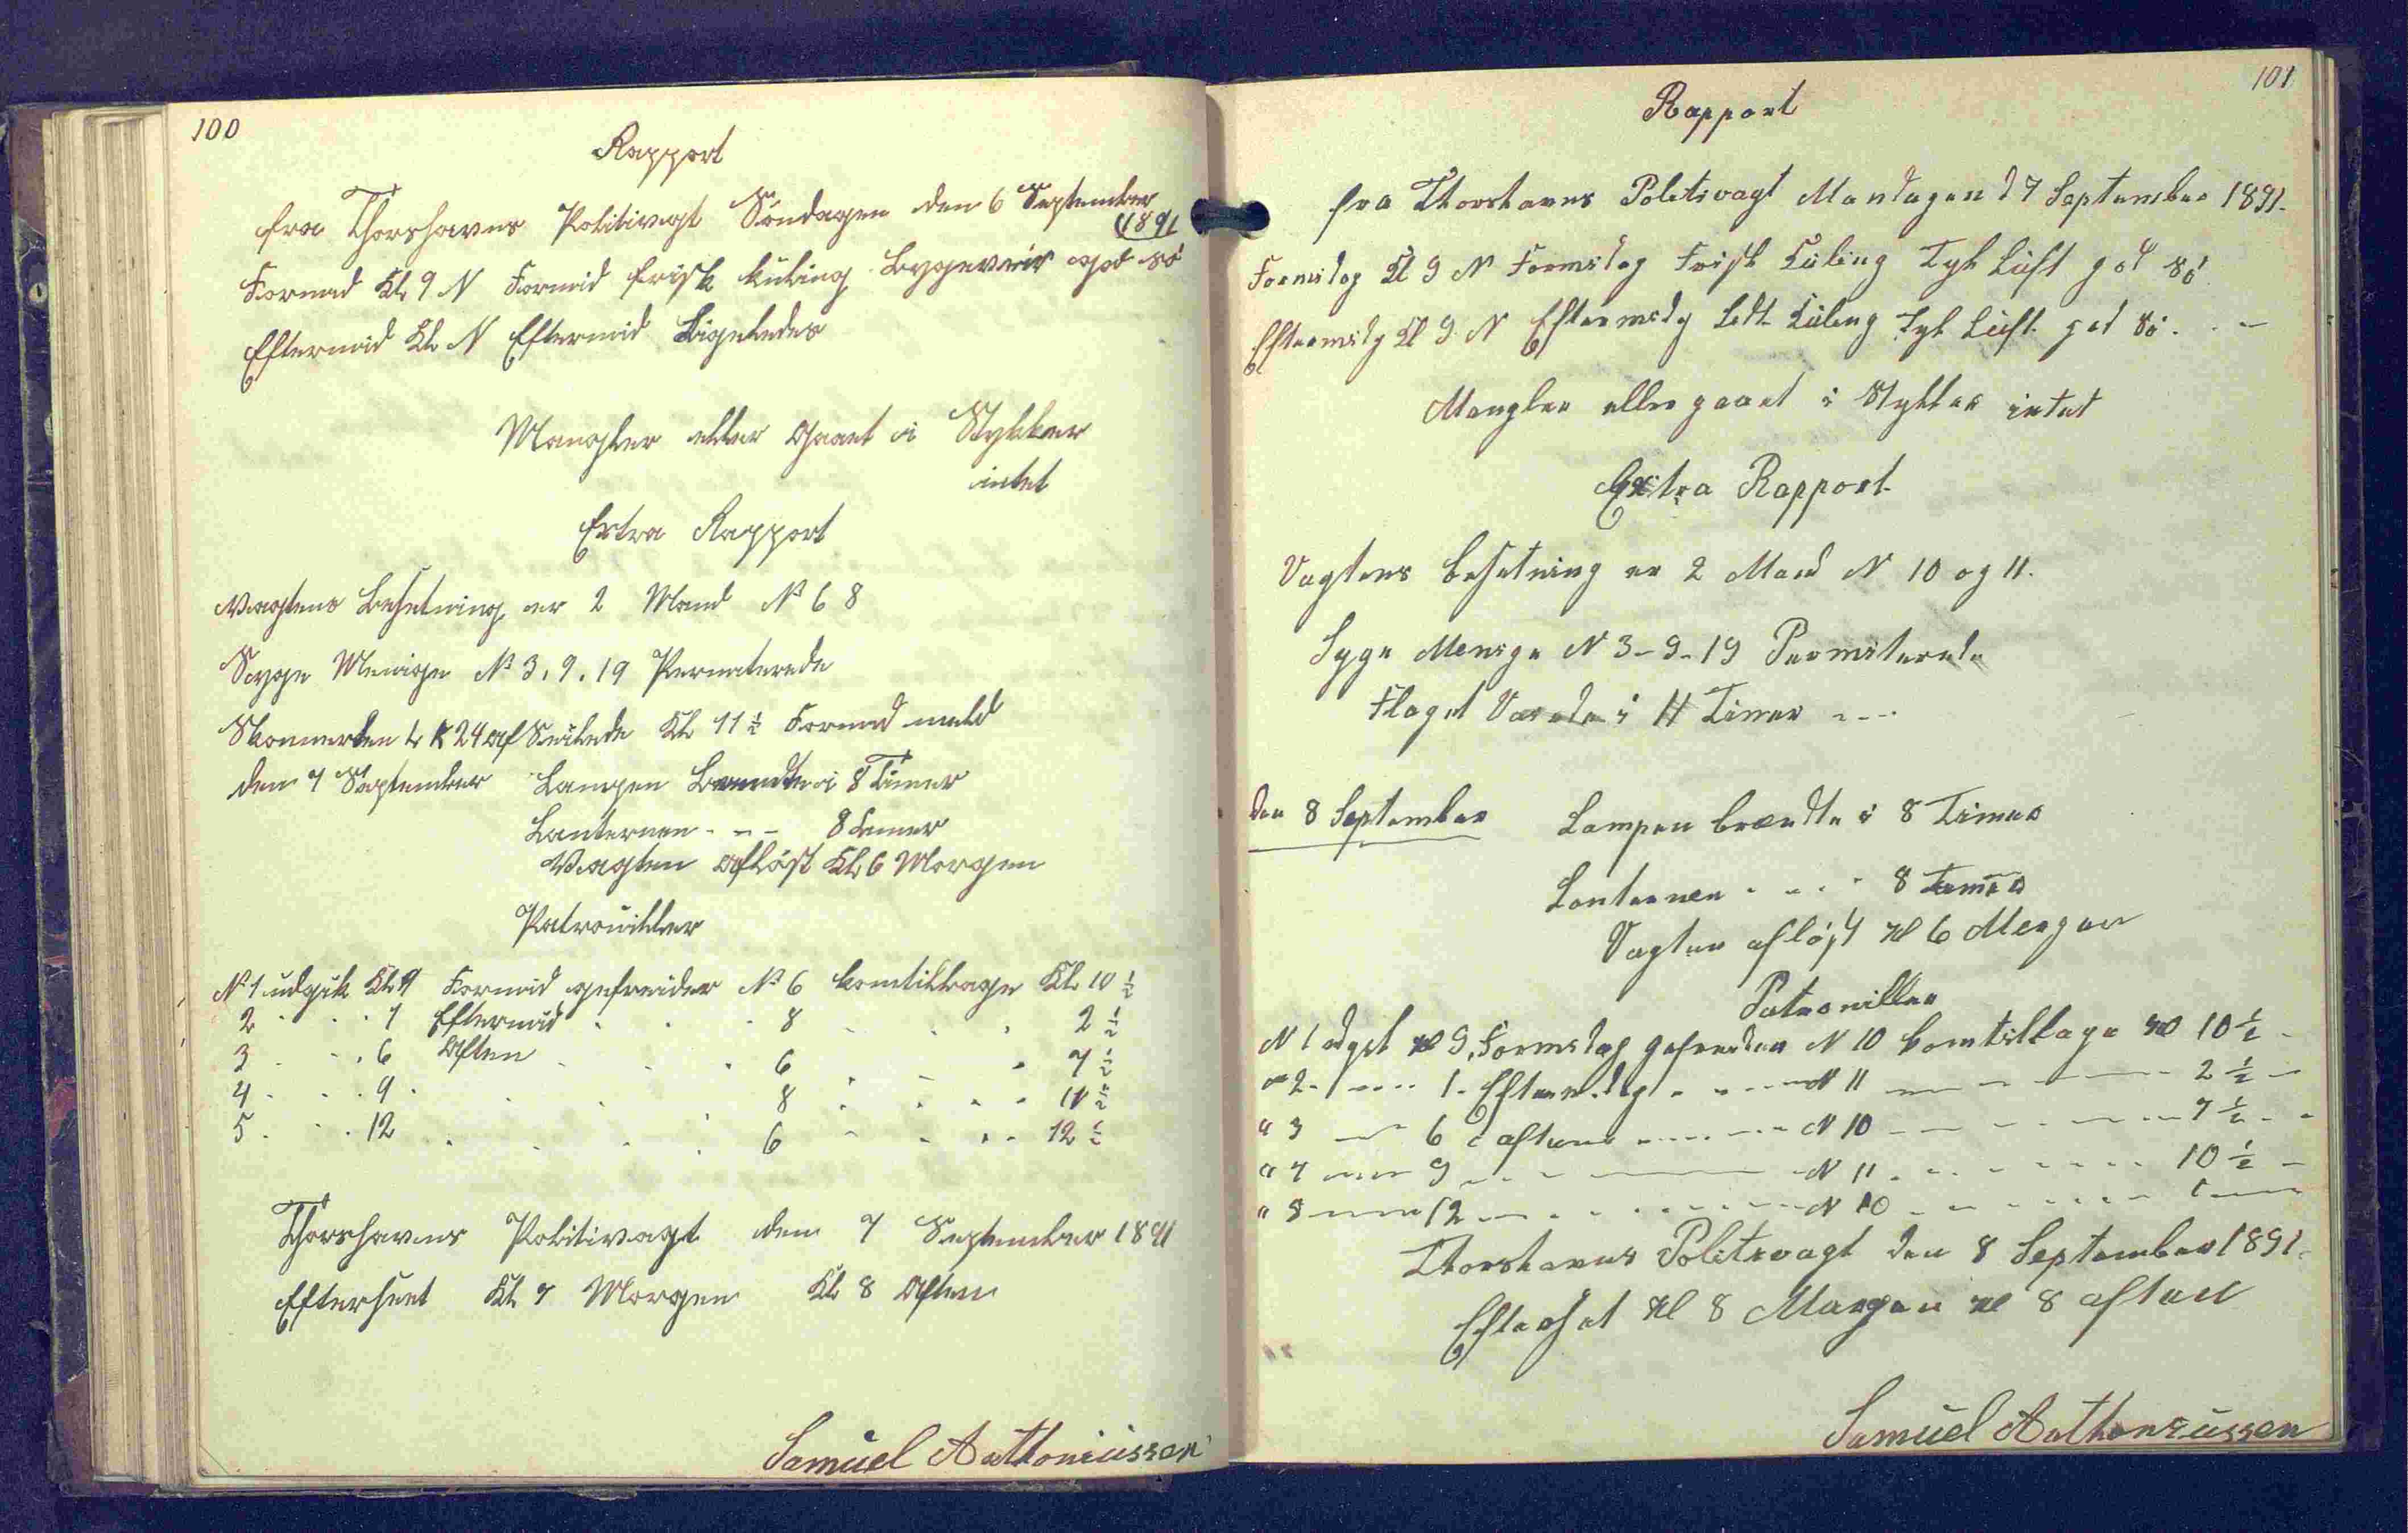 100
Rapport
fra Thorshavns Politivagt Söndagen den 6 September
1891
Formd Kl 9 N Formid frisk kuling Bygeveir god sö
Eftermid Kl N Eftermid Ligeledes
Mangler eller Gaaet i Stykker
intet
Extra Rapport
Vagtens Besetning er 2 Mand No 6 8
Syge Menige No 3, 9, 19 Permiterede
Skonnerten 24 af Seilede Kl 11 1/2 Formd
den 7 September Lampen Brendte i 8 Timer
Lanternen - - - 8 Timer
Vagten Aflöst Kl 6 Morgen
Patrouiller
N 1 udgik Kl 9 Formid gefreider No 6 komtilbage Kl 10 1/2
2 . . . 1 Eftermid . . . 8 . . . 2 1/2
3 . . 6 Aften . . . 6 . 7 1/2
4 . . . 9 . . . . 8 . . . . 10 1/2
5 . . . 12 . . . . 6 . . . . 12 1/2
Thorshavns Politivagt den 7 September 1891
Efterseet Kl 7 Morgen Kl 8 Aften
Samuel Anthoniussen
101
Rapport
fra Thorshavns Politivagt Mandagen d 7 September 1891.
Formidag Kl 9 N Formidag Frisk Kuling Tyk Luft god sö
Eftermidg Kl 9 N Eftermidg Ledt Kuling Tyk Luft god sö . . -
Mangler eller gaaet i Stykker intet
Extra Rapport
Vagtens besetning er 2 Mand N 10 og 11.
Syge Menige N 3-9-19 Permiterede
Flaget Vaiede i 11 Timer - - -
den 8 September Lampen brændte i 8 Timer
Lanternen . . . . 8 Timer
Vagten aflöst Kl 6 Morgen
Patrouiller
N 1 udgik Kl 9 Formidag gefreider N 10 komtilbage Kl 10 1/2 -
" 2 - - - - 1 - Eftermidg - - - - N 11 - - - - 2 1/2 -
" 3 - - 6 aften - - - - N 10 - - - - 7 1/2 - -
" 4 - - 9 - - - - N 11 - - - - 10 1/2 -
" 5 - - 12 - - - - N 10 - - - - 1 - -
Thorshavns Politivagt den 8 September 1891.
Efterset Kl 8 Morgen Kl 8 aften
Samuel Anthoniussen